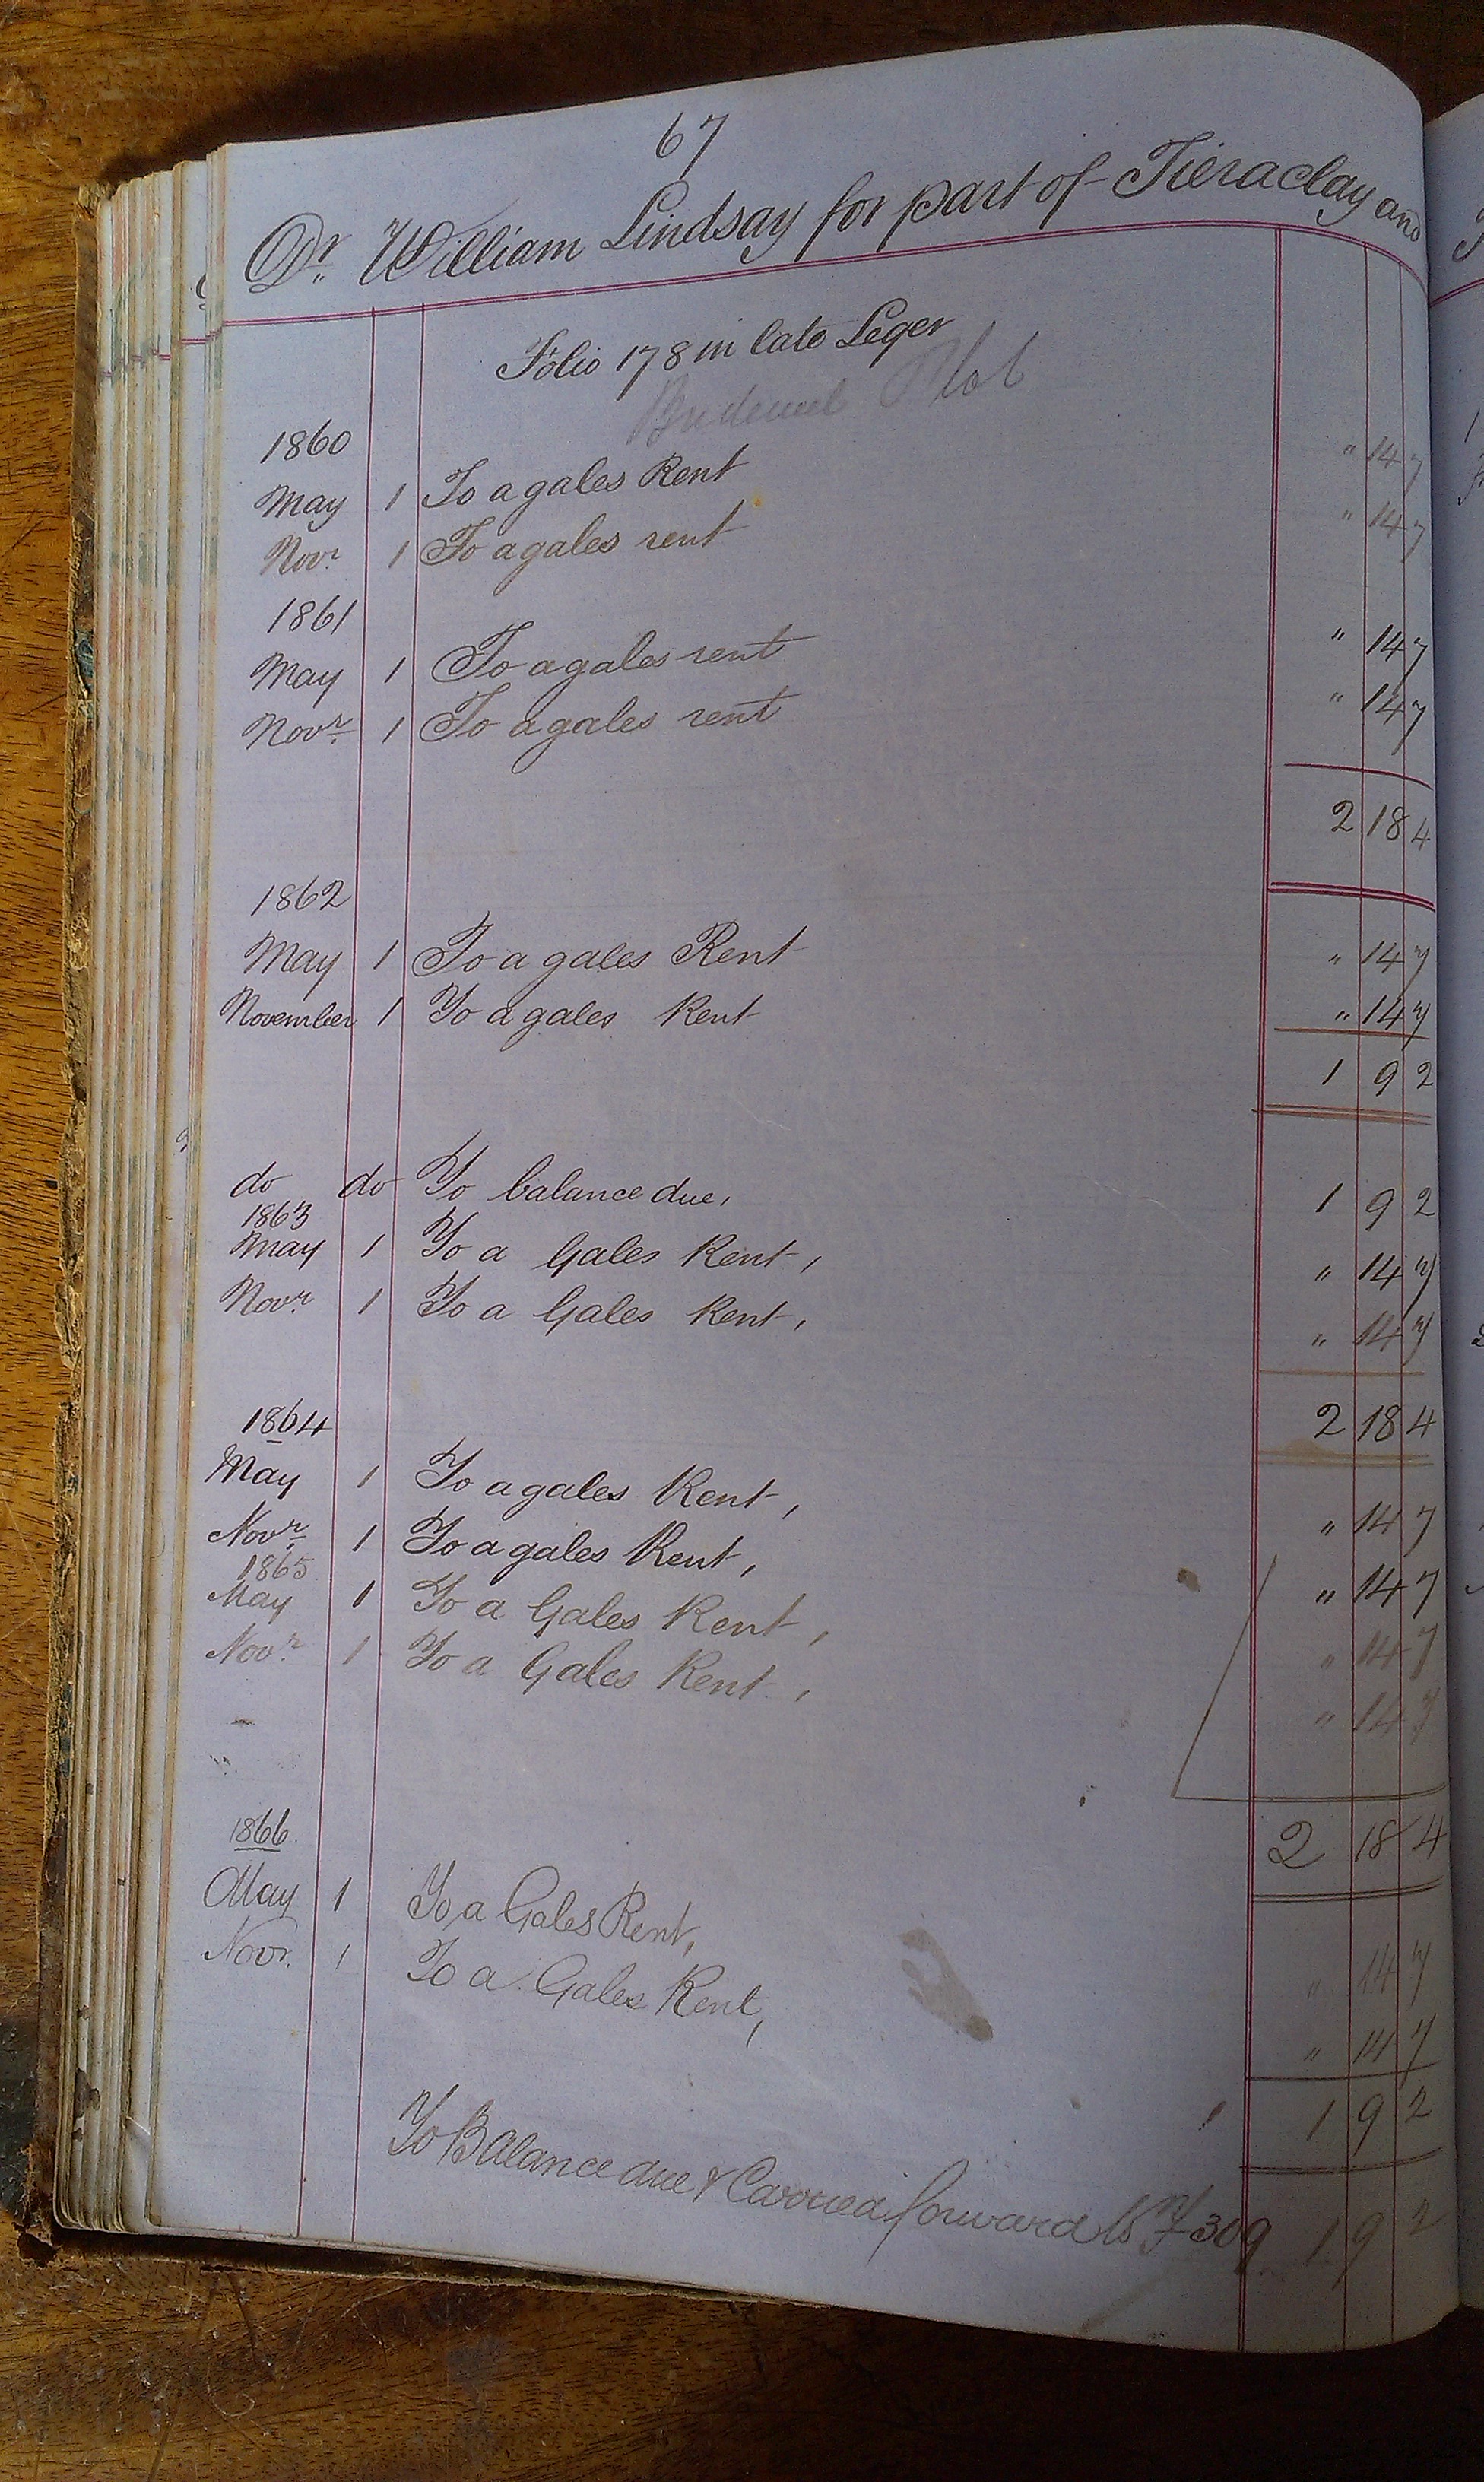 67
Dr. William Lindsay for part of Tieraclay and
Folio 178 in late Leger
Plot
1860
May 1 To a gales Rent " 14 7
Novr. 1 To a gales rent " 14 7
1861
May 1 To a gales rent " 14 7
Novr. 1 To a gales rent " 14 7
2 18 4
1862
May 1 To a gales Rent " 14 7
November 1 To a gales Rent " 14 7
1 9 2
do do To balance due, 1 9 2
1863
May 1 To a Gales Rent, " 14 7
Novr. 1 To a Gales Rent, " 14 7
2 18 4
1864
May 1 To a gales Rent, " 14 7
Novr. 1 To a gales Rent, " 14 7
1865
May 1 To a Gales Rent, " 14 7
Novr. 1 To a Gales Rent, " 14 7
2 18 4
1866.
May 1 To a Gales Rent, " 14 7
Novr. 1 To a Gales Rent, " 14 7
1 9 2
To Balance due & Carried forward to F 309 1 9 2